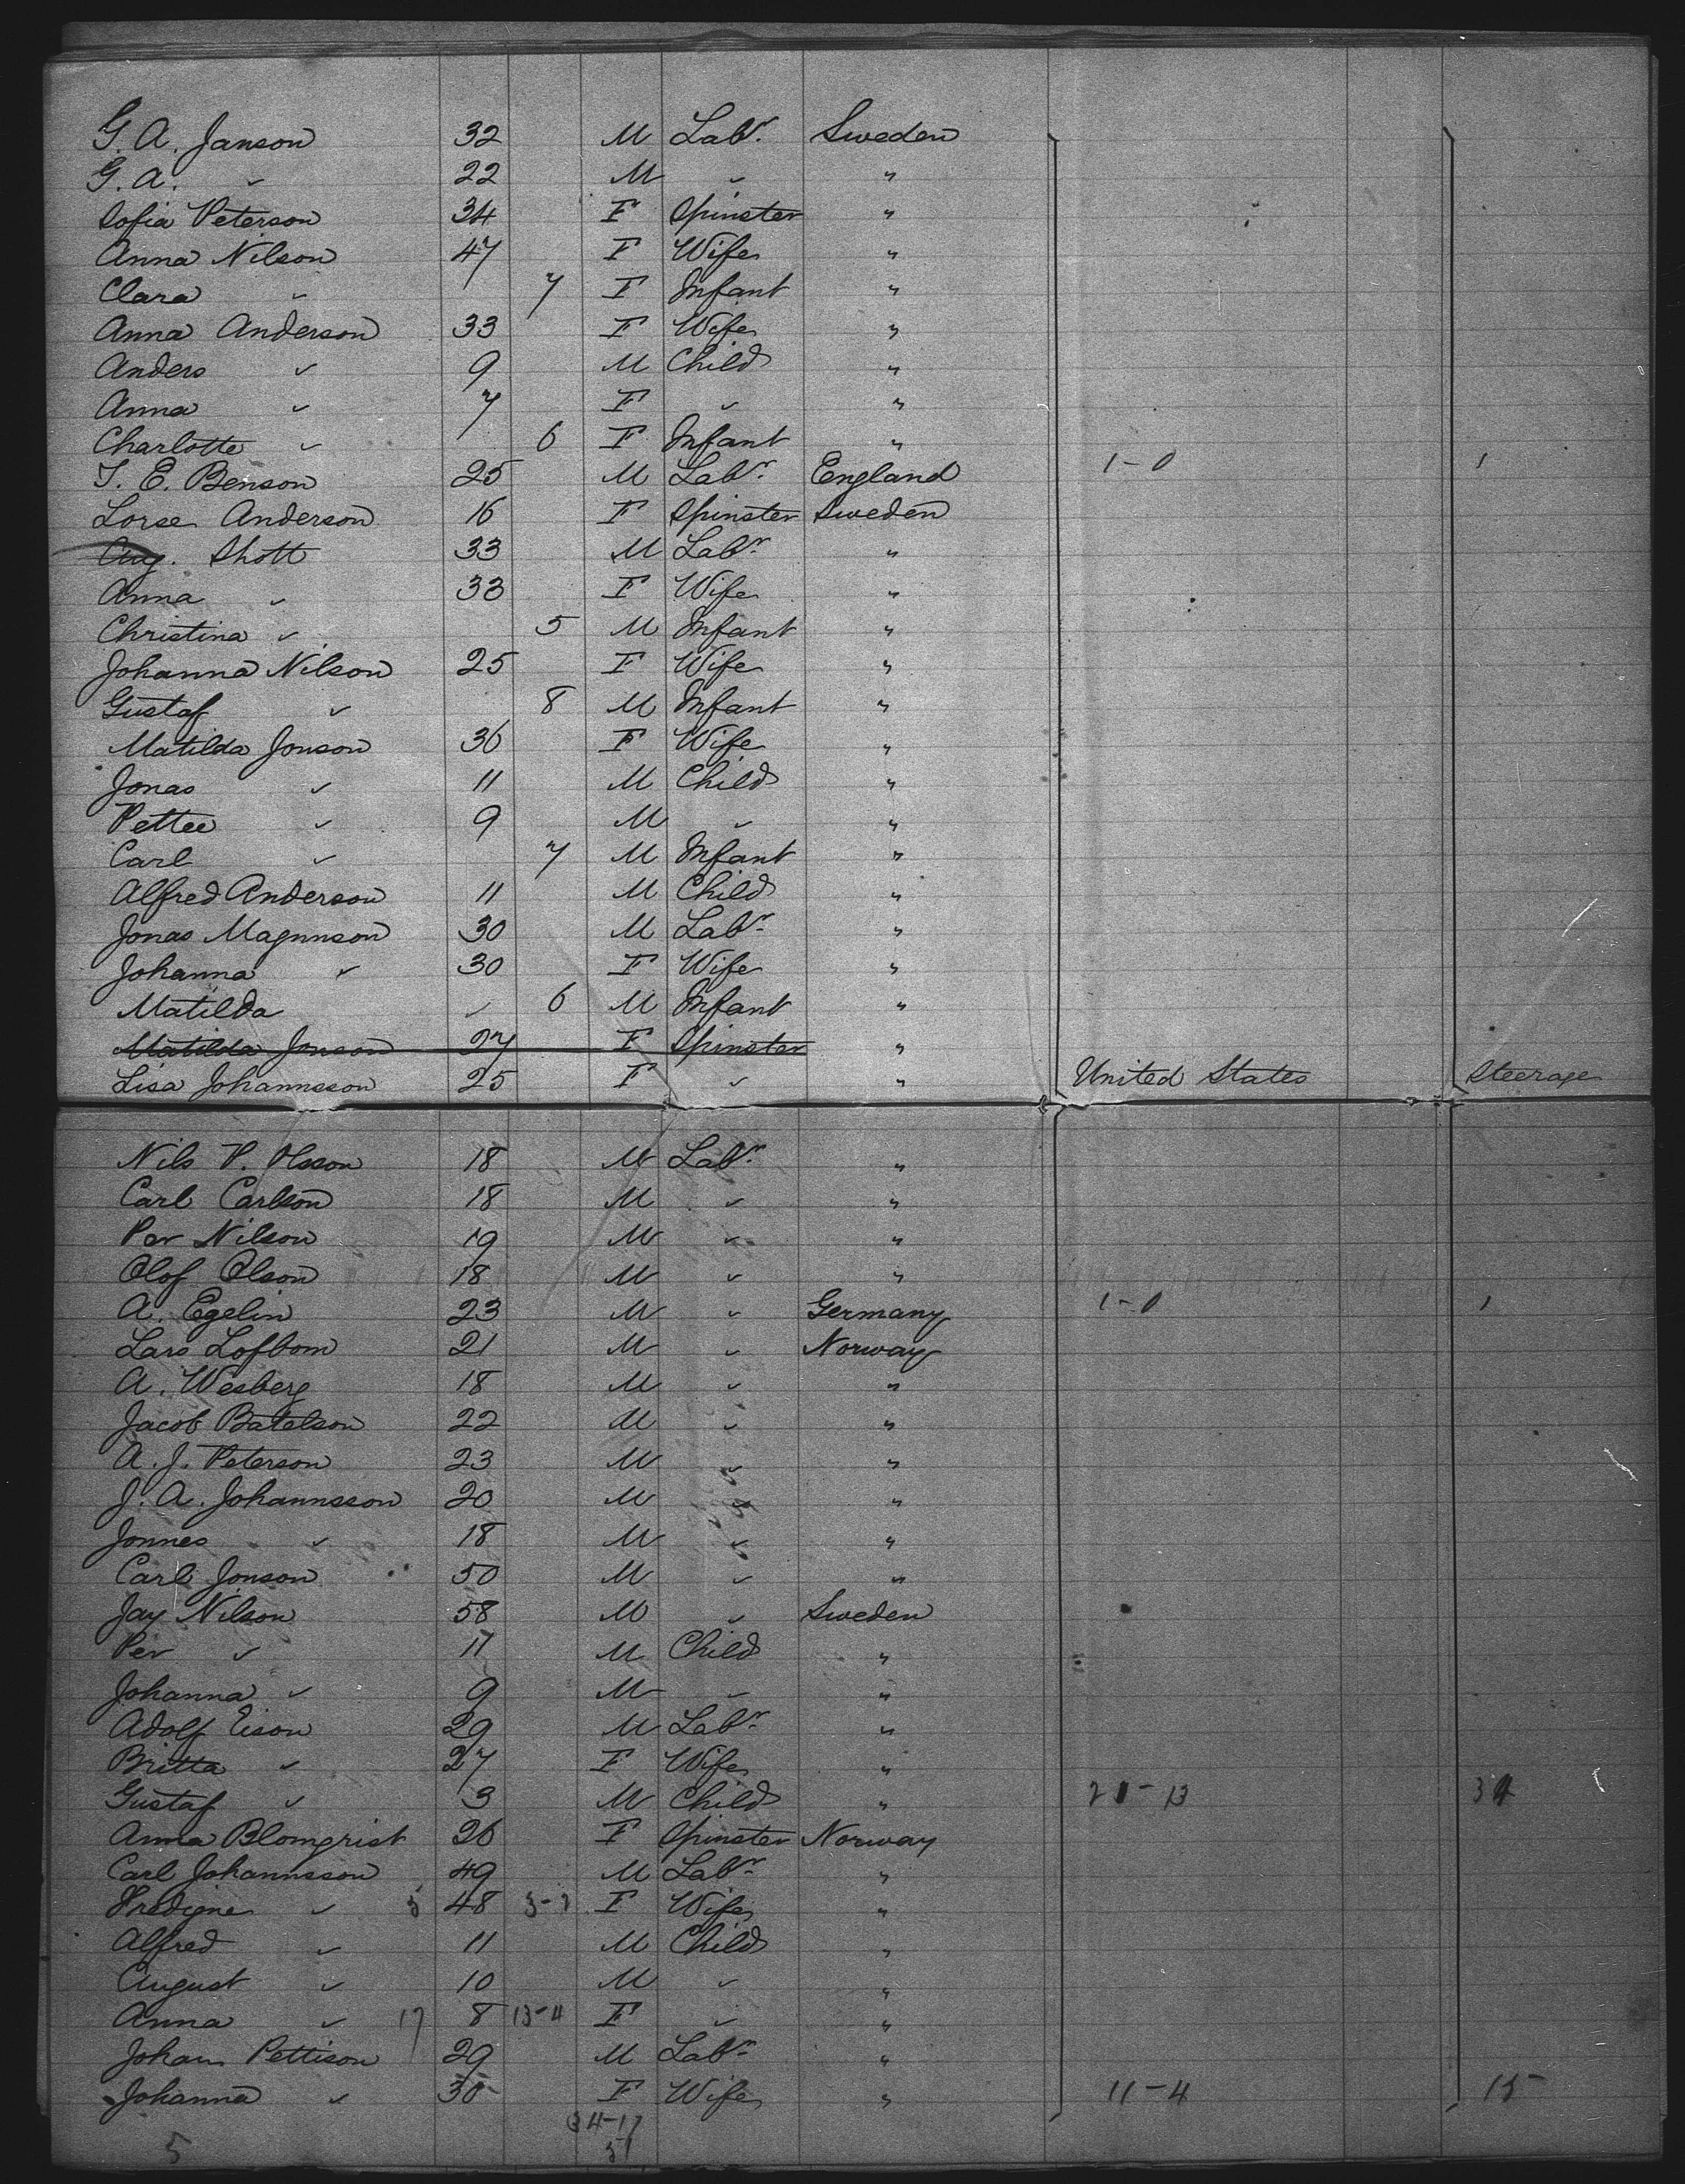 G. A. Janson 32 M Labr. Sweden
G. A. " 22 M " "
Sofia Peterson 34 F Spinster "
Anna Nilson 47 F Wife "
Clara " 7 F Infant "
Anna Anderson 33 F Wife "
Anders " 9 M Child "
Anna " 7 F " "
Charlotte " 6 F Infant "
T. E. Benson 25 M Labr. England 1-0 1
Lorse Anderson 16 F Spinster Sweden
Aug. Shott 33 M Labr. "
Anna " 33 F Wife "
Christina " 5 M Infant "
Johanna Nilson 25 F Wife "
Gustaf " 8 M Infant "
Matilda Jonson 36 F Wife "
Jonas " 11 M Child "
Pettee " 9 M " "
Carl " 7 M Infant "
Alfred Anderson 11 M Child "
Jonas Magnnson 30 M Labr. "
Johanna " 30 F Wife "
Matilda " 6 M Infant "
Matilda Jonson 27 F Spinster "
Lisa Johannsson 25 F " " United States Steerage
Nils P. Olsson 18 M Labr. "
Carl Carlson 18 M " "
Per Nilson 19 M " "
Olof Olson 18 M " "
A. Egelin 23 M " Germany 1-0 1
Lars Lofbom 21 M " Norway
A. Wesberg 18 M " "
Jacob Batelson 22 M " "
A. J. Peterson 23 M " "
J. A. Johannsson 20 M " "
Jonnes " 18 M " "
Carl Jonson 50 M " "
Jay Nilson 58 M " Sweden
Per " 11 M Child "
Johanna " 9 M " "
Adolf Eison 29 M Labr. "
Britta " 27 F Wife "
Gustaf " 3 M Child " 21-13 34
Anna Blomgrist 26 F Spinster Norway
Carl Johannsson 49 M Labr. "
" 5 48 F Wife "
Alfred " 11 M Child "
August " 10 M " "
Anna " 17 8 13-4 F " "
Johan Pettison 29 M Labr. "
Johanna " 30 F Wife " 11-4 15
34-17
5 51